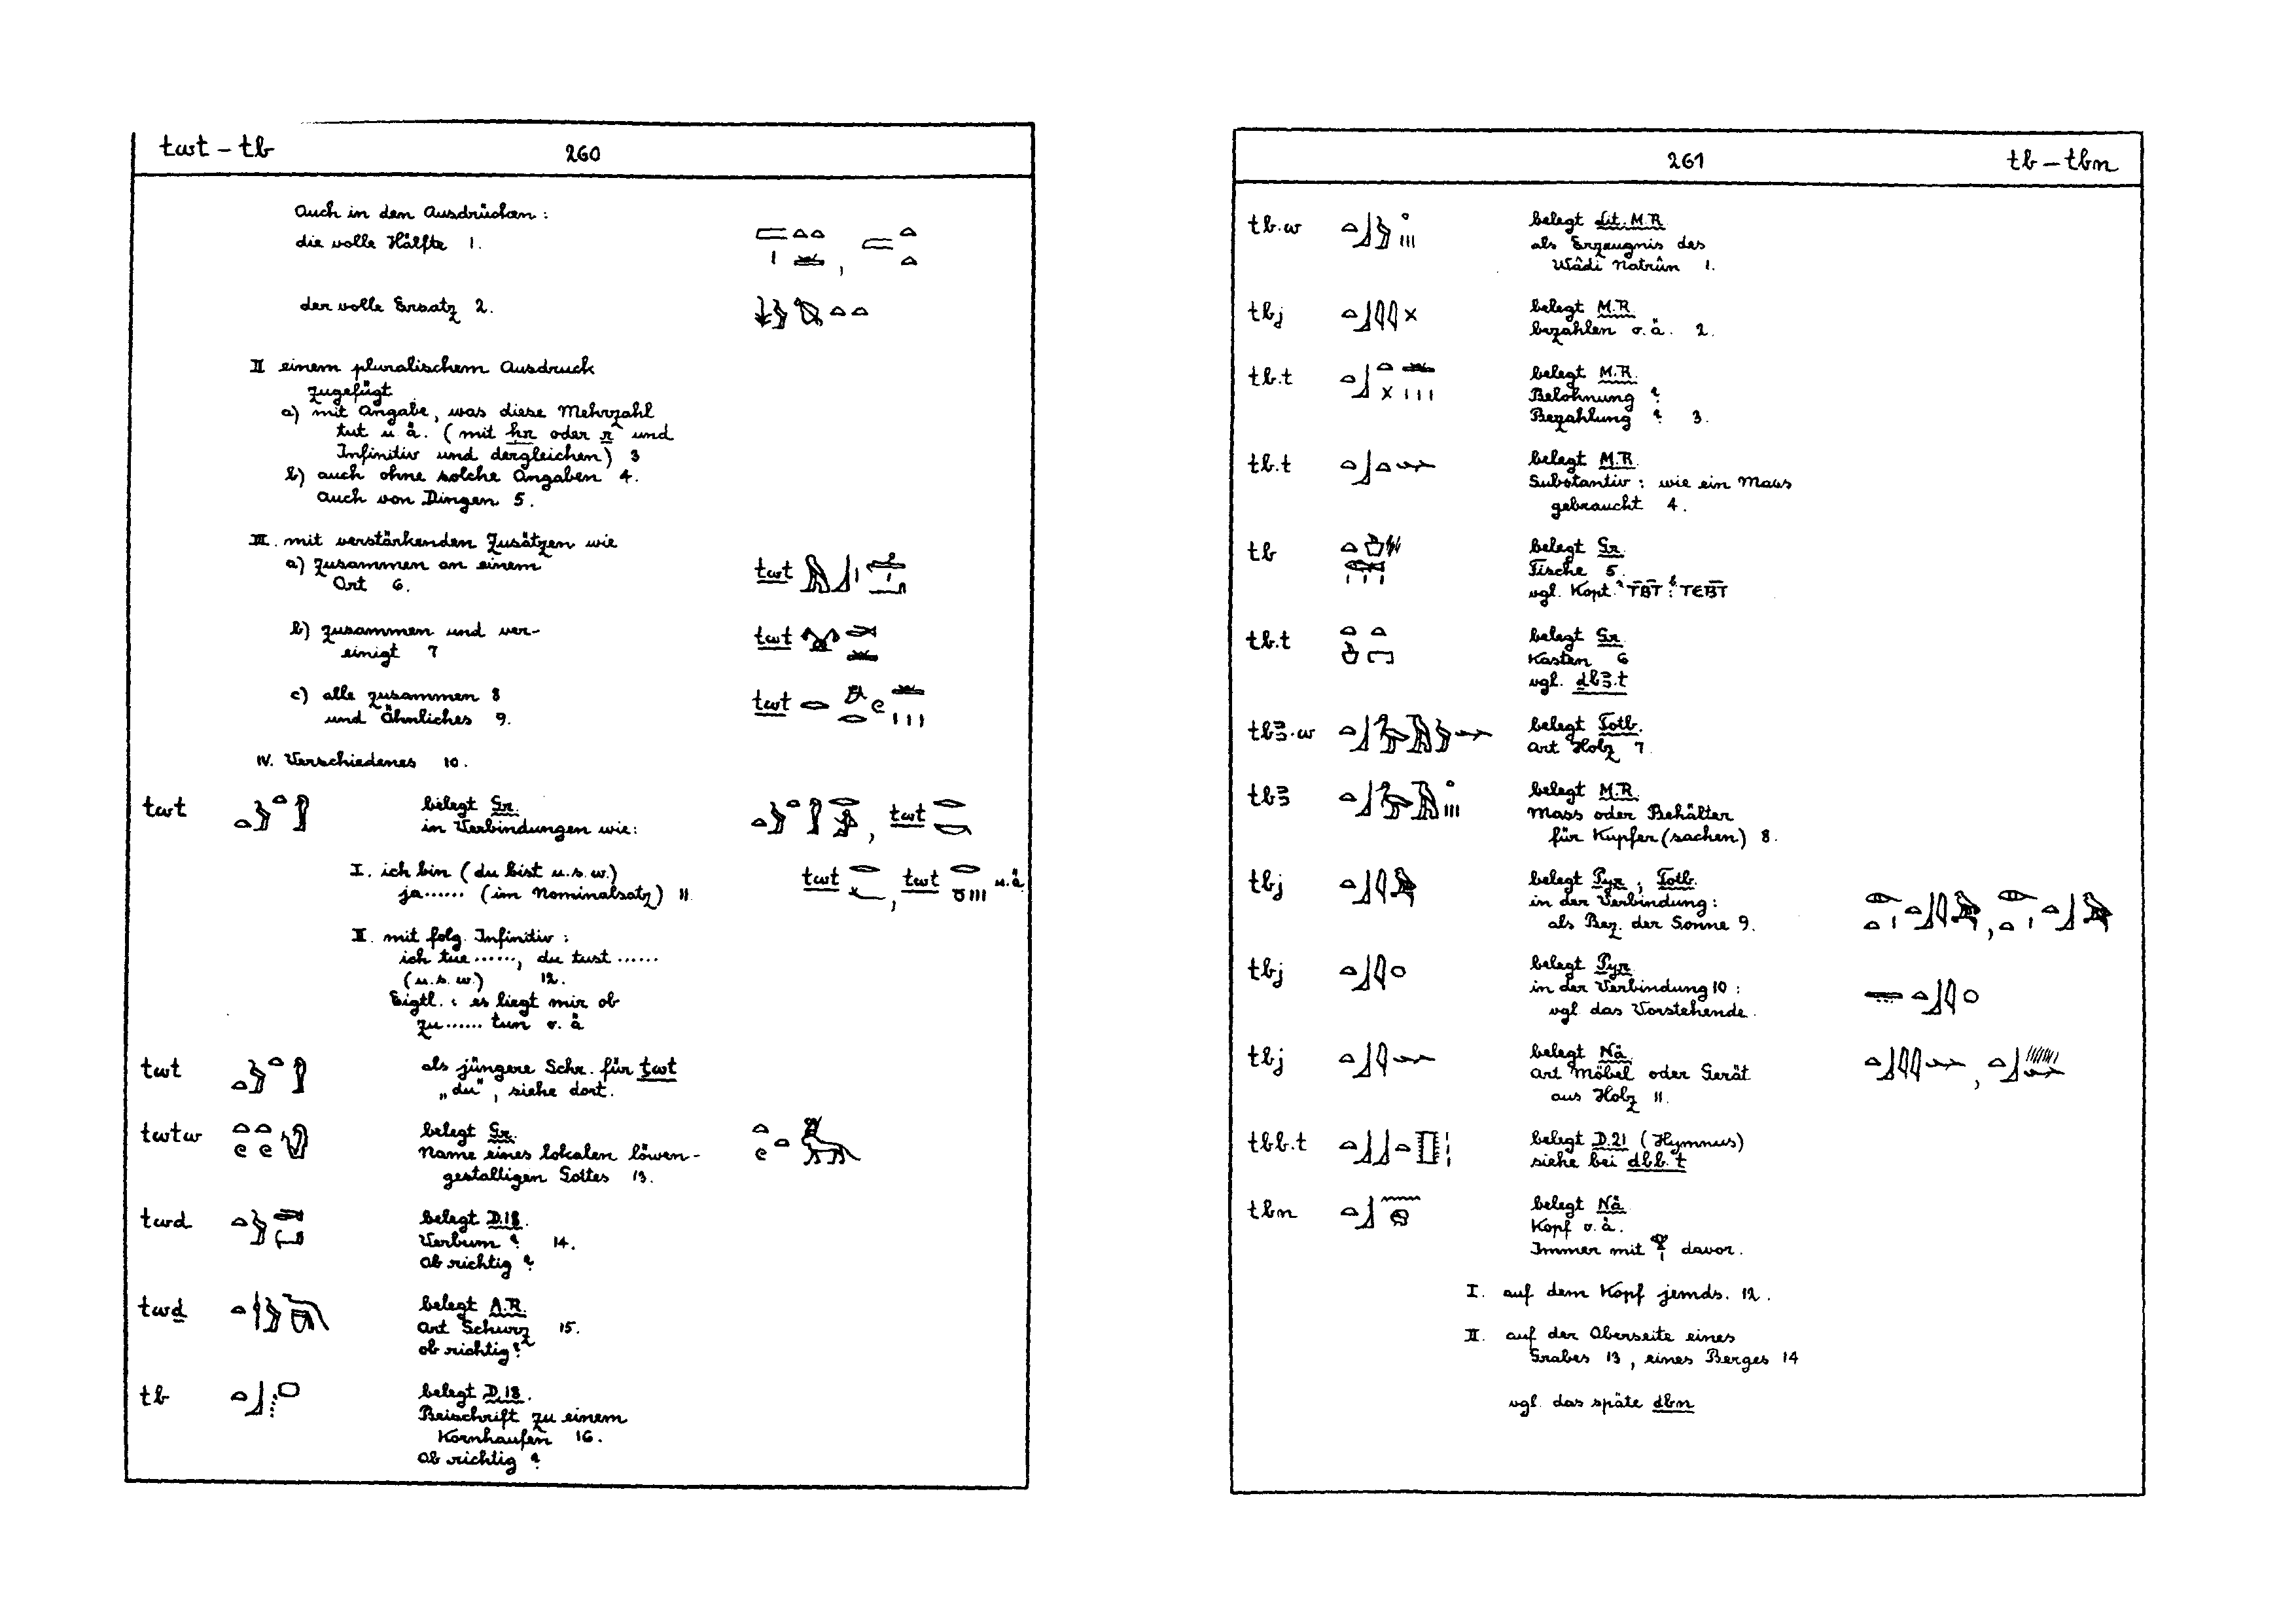 twt – tb
260
Auch in den Ausdrücken:
die volle Hälfte 1.
der volle Ersatz 2.
II einem pluralischem Ausdruck
zugefügt
a) mit Angabe, was diese Mehrzahl
tut u. ä. (mit ḥr oder r und
Infinitiv und dergleichen) 3
b) auch ohne solche Angaben 4.
Auch von Dingen 5.
III. mit verstärkenden Zusätzen wie
a) zusammen an einem twt
Ort 6.
b) zusammen und ver- twt
einigt 7
c) alle zusammen 8 twt
und Ähnliches 9.
IV. Verschiedenes 10.
twt belegt Gr.
in Verbindungen wie: , twt
I. ich bin (du bist u.s.w.) twt , twt u.ä.
ja...... (im Nominalsatz) 11
II. mit folg. Infinitiv:
ich tue ......, du tust ......
(u.s.w.) 12.
Eigtl.: es liegt mir ob
zu ...... tun o. ä
twt als jüngere Schr. für ṯwt
„du“, siehe dort.
twtw belegt Gr.
Name eines lokalen löwen-
gestaltigen Gottes 13.
twd belegt D.18.
Verbum ? 14.
Ob richtig ?
twḏ belegt A.R.
Art Schurz 15.
ob richtig ?
tb belegt D.18.
Beischrift zu einem
Kornhaufen 16.
Ob richtig ?
261
tb – tbn
tb.w belegt Lit. M.R.
als Erzeugnis des
Wâdi Natrûn 1.
tbj belegt M.R.
bezahlen o.ä. 2.
tb.t belegt M.R.
Belohnung ?
Bezahlung ? 3.
tb.t belegt M.R.
Substantiv: wie ein Mass
gebraucht 4.
tb belegt Gr.
Fische 5.
vgl. Kopt. ᵃ ⲧⲃ̅ⲧ̅ : ᵇ ⲧⲉⲃ̅ⲧ̅
tb.t belegt Gr.
Kasten 6
vgl. ḏbꜣ.t
tbꜣ.w belegt Totb.
Art Holz 7.
tbꜣ belegt M.R.
Mass oder Behälter
für Kupfer(sachen) 8.
tbj belegt Pyr.; Totb.
in der Verbindung:
als Bez. der Sonne 9.
tbj belegt Pyr.
in der Verbindung 10:
vgl. das Vorstehende.
tbj belegt Nä.
Art Möbel oder Gerät
aus Holz 11.
tbb.t belegt D.21 (Hymnus)
siehe bei dbb.t
tbn belegt Nä.
Kopf o.ä.
Immer mit davor.
I. auf dem Kopf jemds. 12.
II. auf der Oberseite eines
Grabes 13, eines Berges 14
vgl. das späte dbn